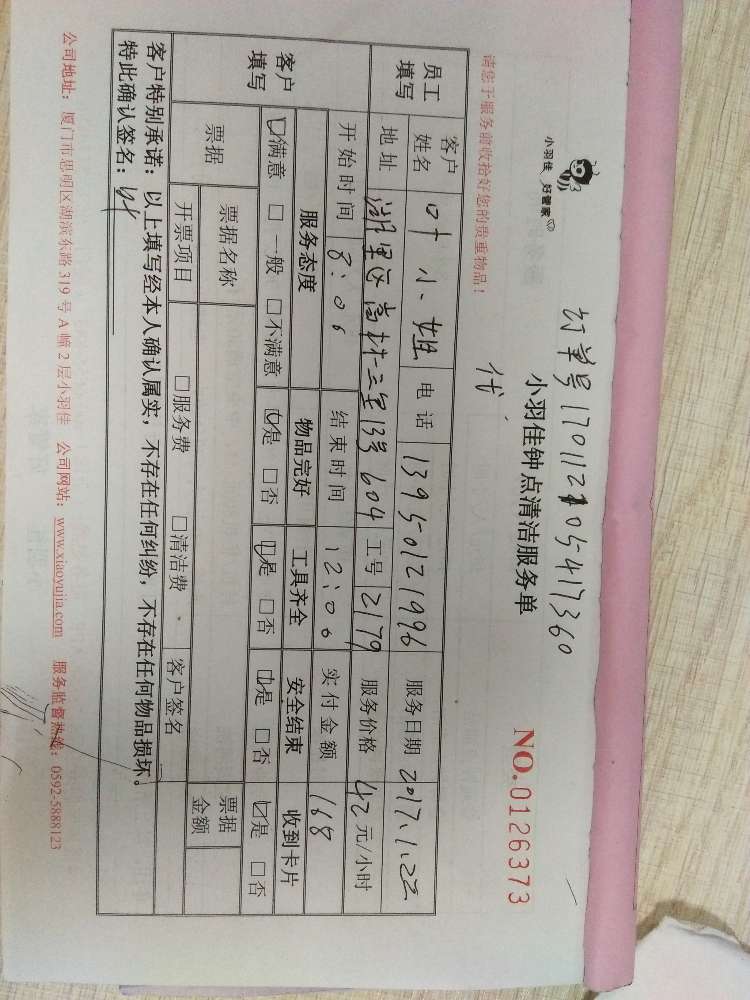 订单号170112105417360
小羽佳 好管家
小羽佳钟点清洁服务单
NO.0126373
请您于服务前收拾好您的贵重物品!
代
员工填写 客户姓名 叶小姐 电话 13950121996 服务日期 2017.1.22
地址 湖里区 高林 13号 604 工号 2179 服务价格 42元/小时
开始时间 8:06 结束时间 12:06 实付金额 168
客户填写 服务态度 物品完好 工具齐全 安全结束 收到卡片
☑满意 □一般 □不满意 ☑是 □否 ☑是 □否 ☑是 □否 ☑是 □否
票据 票据名称 □服务费 □清洁费 客户签名 票据金额
开票项目
客户特别承诺:以上填写经本人确认属实,不存在任何纠纷,不存在任何物品损坏。
特此确认签名:叶
公司地址:厦门市思明区湖滨东路319号A幢2层小羽佳 公司网站:www.xiaoyujia.com 服务监督热线:0592-5888123